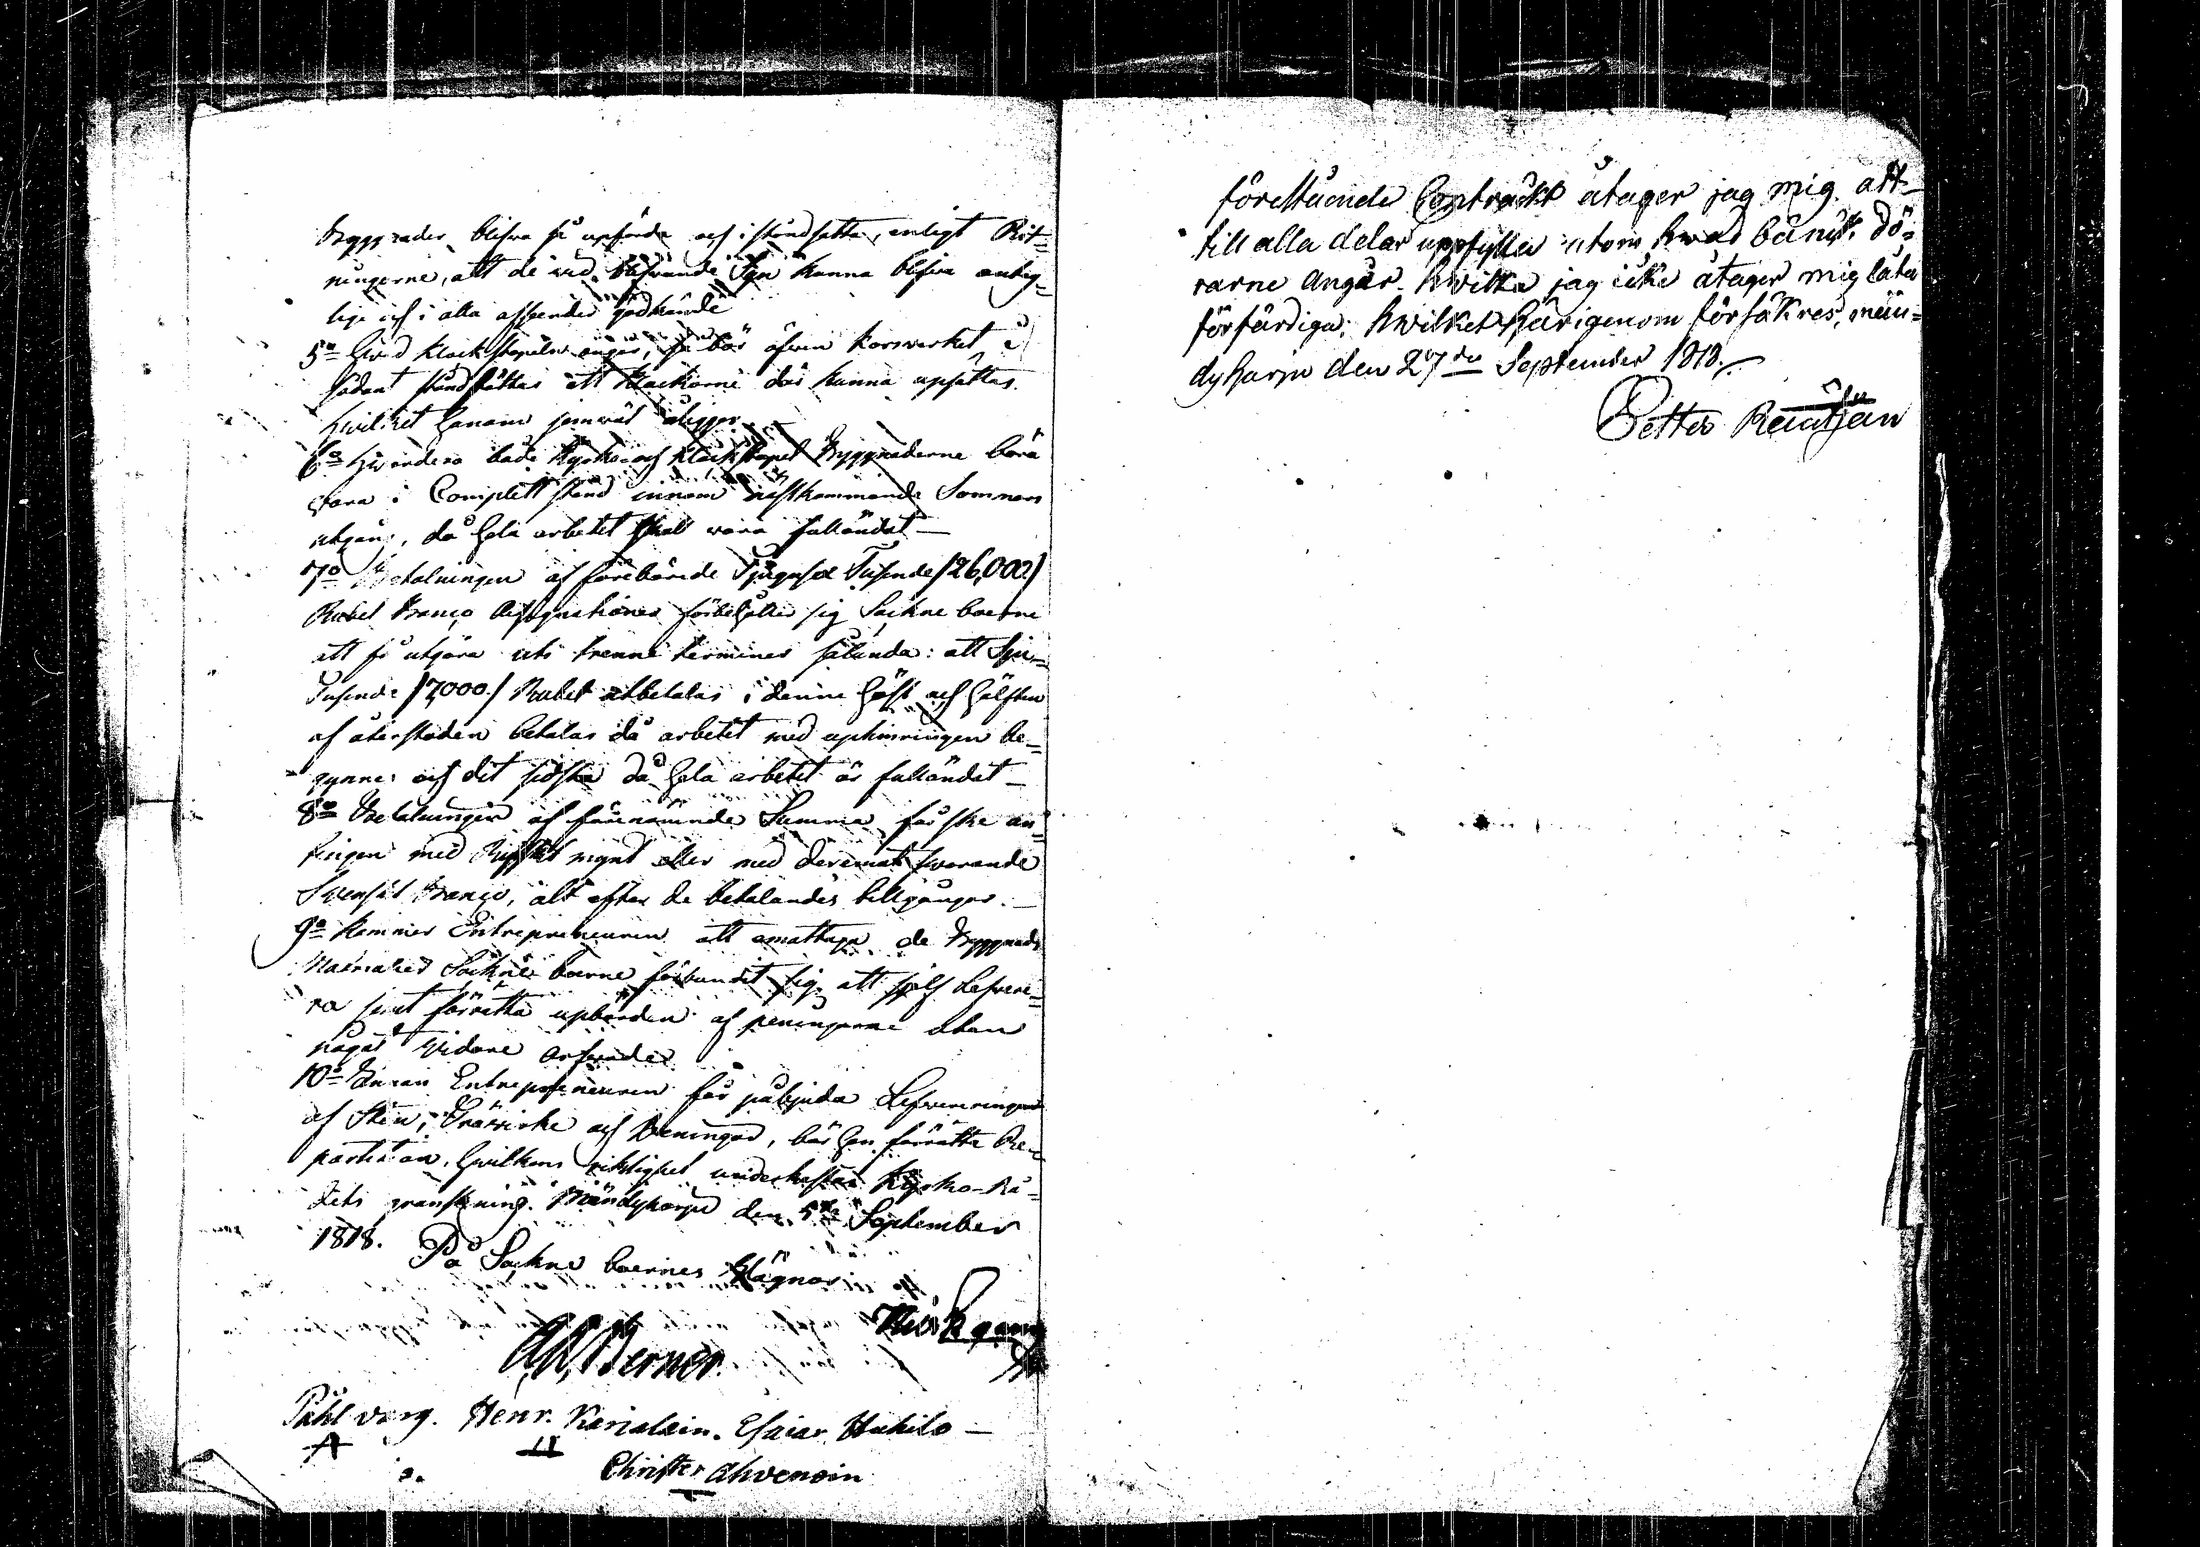 byggnader blifva så upförda och i stånd satta, enligt Rit-
ningarne, att de vid blifvande Syn kunna blifva
lige och i alla afseenden godkände
5o Hvad klockstapeln angår, så bör äfven korsverket i
sådant stånd sättas att klockorne där kunna upsättas.
hvilket honom jemväl åligger
6o både Kyrko och klockstapel Byggnaderne böra
vara i Complett stånd innom nästkommande Sommars
utgång, då hela arbetet skall vara fulländat —
7o Betalningen af Tjugusex Tusende /26,000./
Rubel Banco Assignationer förbehåller sig Sockne boerne
att få utgöra uti trenne terminer sålunda: att Sju
Tusende /7,000./ Rubel utbetalas i denne höst och hälften
af återstoden betalas då arbetet med uptimringen be=
gynnes och det sidsta då hela arbetet är fulländat —
8o Betalningen af förenämnde Summa får ske an=
tingen med Ryskt mynt eller med deremot svarande
Svenskt Banco, alt efter de betalandes tillgångar. —
9o kommer Entrepreneuren att emottaga de Byggnads
Materialier Sockne boerne förbundit sig att sjelf Lefvere=
ra samt förrätta upbörden af penningarne utan
något vidare arfvode
10o Innan Entrepreneuren får påbjuda Lefvereringen
af Sten, Trävirke och Penningar, bör han förrätta Re=
partition, hvilkens riktighet underkastas Kyrko-Rå=
dets granskning. Mändyharju den 5te September
1818. På Sockne boernes Wägnar
Ad. Berner.
Påhl Henr. Karjalain. Esaias Hukilo —
Christer Ahvenain
förestående Contrackt åtager jag mig att
till alla delar uppfylla utom hvad bänk. Dö=
rarne angår. hvilka jag icke åtager mig låta
förfärdiga; hvilket härigenom försäkres, män=
dyharju den 27de September 1818.
Petter